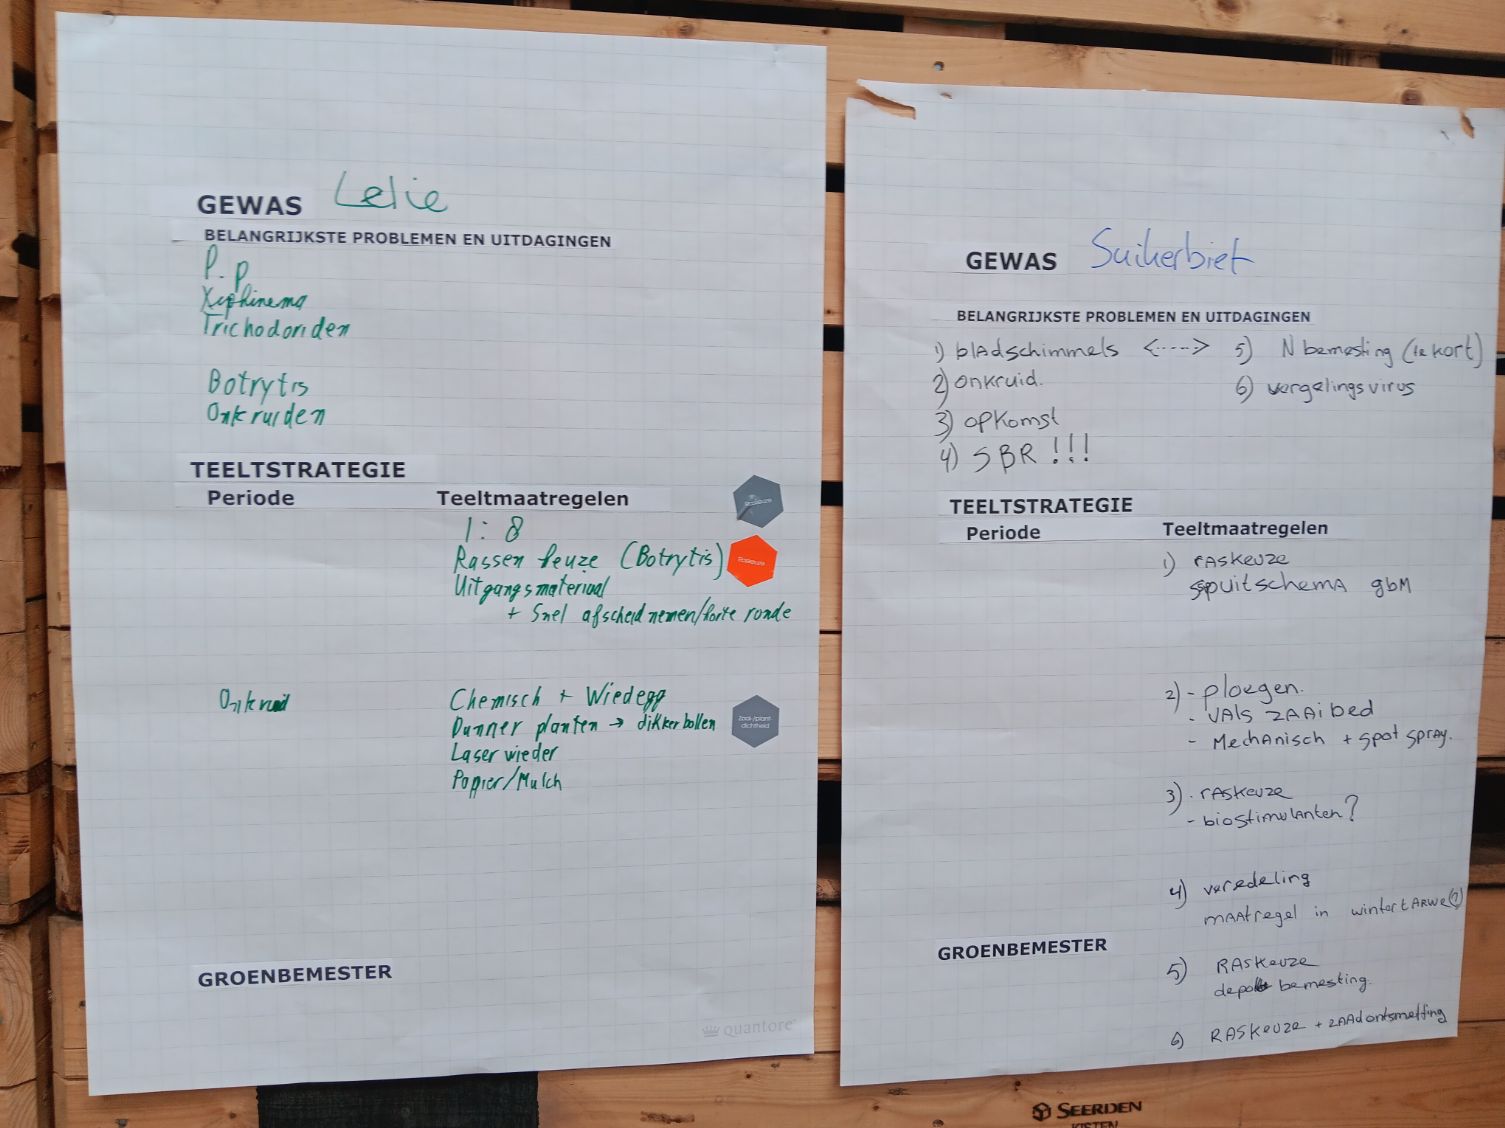 GEWAS Lelie
BELANGRIJKSTE PROBLEMEN EN UITDAGINGEN
P.P
Xiphinema
Trichodoriden
Botrytis
Onkruiden
TEELTSTRATEGIE
Periode Teeltmaatregelen
1:8
Rassen keuze (Botrytis)
Uitgangsmateriaal
+ Snel afscheid nemen/korte ronde
Onkruid Chemisch + Wiedegg
Dunner planten → dikker bollen
Zaai-/plant
dichtheid
Laser wieder
Papier/Mulch
GROENBEMESTER
quantore
GEWAS Suikerbiet
BELANGRIJKSTE PROBLEMEN EN UITDAGINGEN
1) bladschimmels <----> 5) N bemesting (te kort)
2) onkruid. 6) vergelingsvirus
3) opkomst
4) SBR !!!
TEELTSTRATEGIE
Periode Teeltmaatregelen
1) raskeuze
spuitschema gbM
2) - ploegen.
- vals zaaibed
- Mechanisch + spot spray.
3) - raskeuze
- biostimulanten?
4) veredeling
maatregel in wintertarwe(?)
GROENBEMESTER
5) Raskeuze
bemesting.
6) Raskeuze + zaadontsmetting
SEERDEN
KISTEN